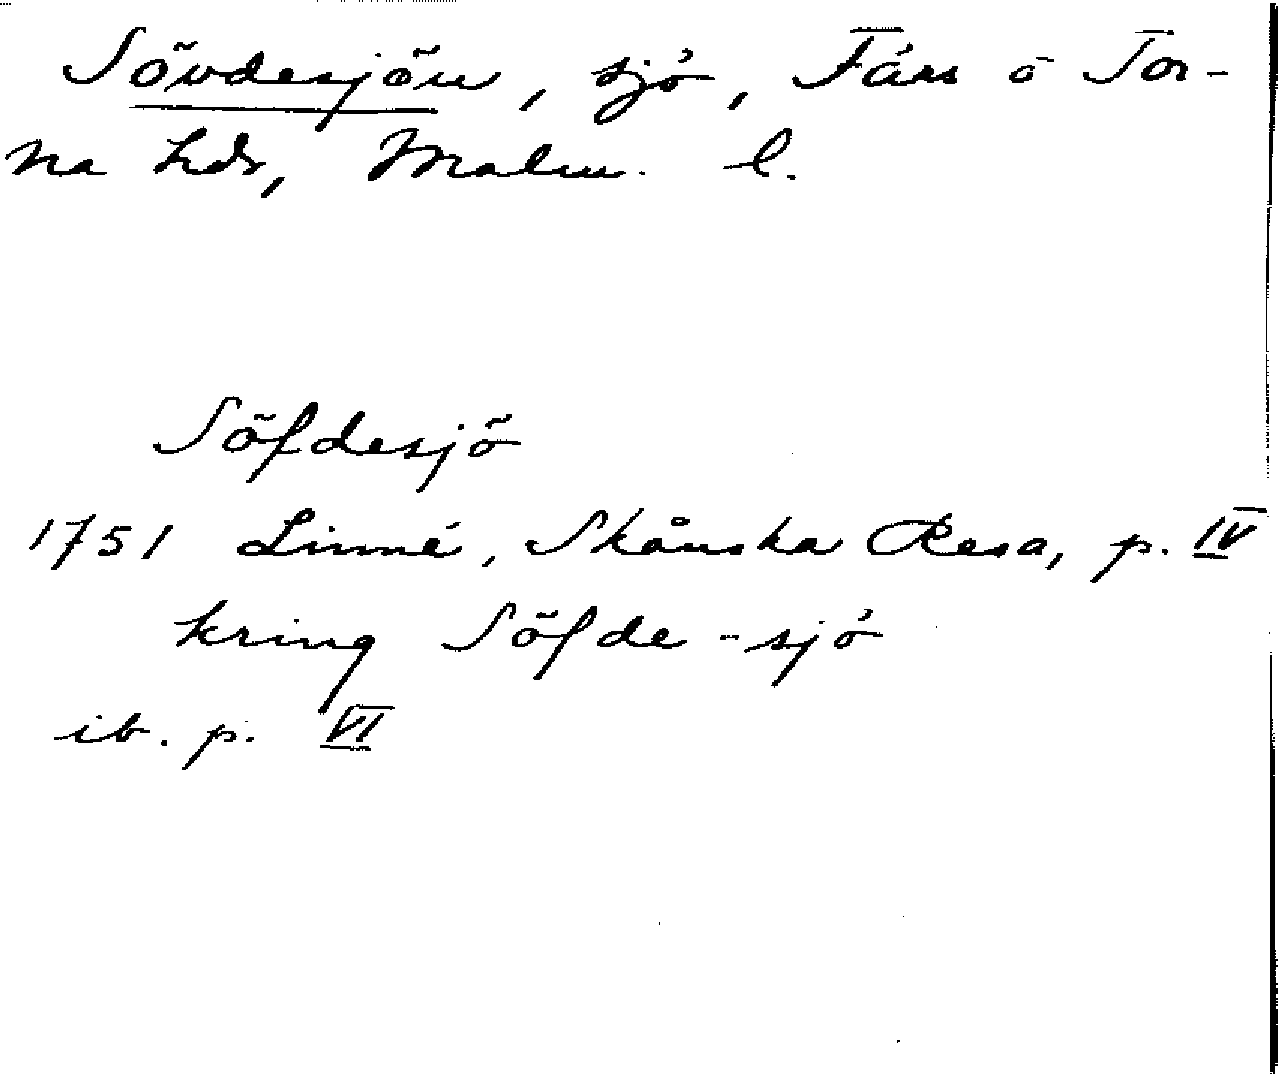 Sövdesjön, sjö, Färs o Tor-
na hdr, Malm. l.
Söfdesjö
1751 Linné, Skånska Resa, p. IV
kring Söfde-sjö
ib. p. VI